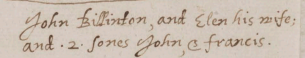 John Billinton, and Elen his wife;
and ·2· sones John, & francis.